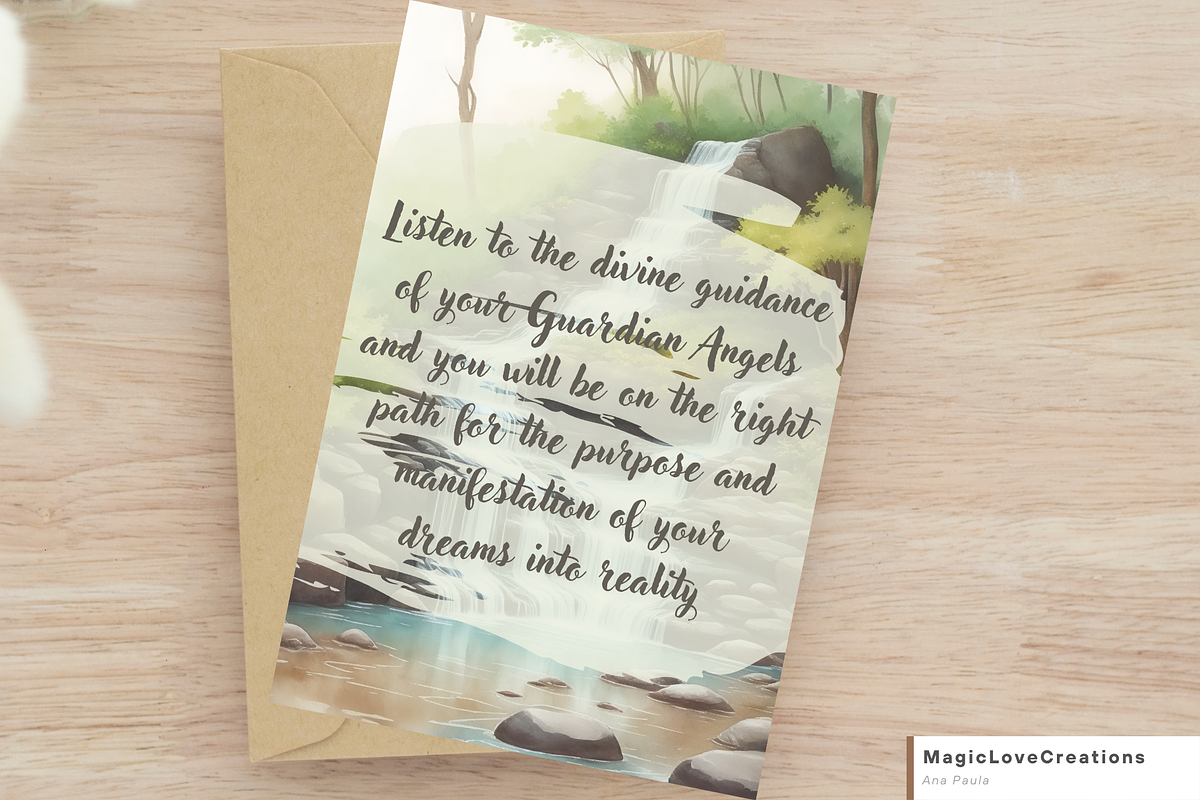 Listen to the divine guidance
of your Guardian Angels
and you will be on the right
path for the purpose and
manifestation of your
dreams into reality
MagicLoveCreations
Ana Paula